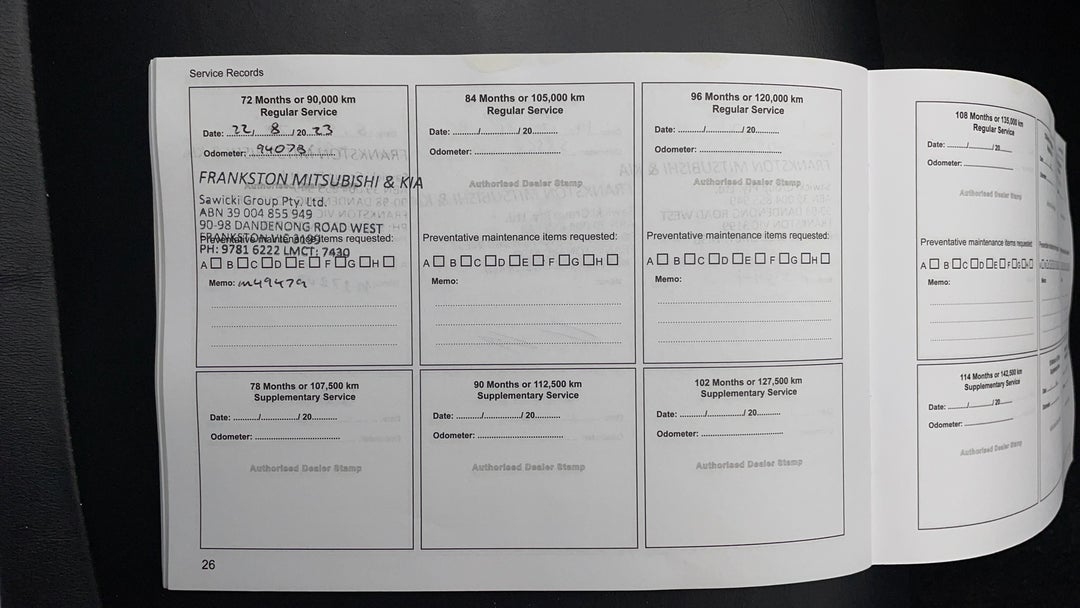 Service Records
72 Months or 90,000 km
Regular Service
Date: 22/ 8 /20 23
Odometer: 94073
FRANKSTON MITSUBISHI & KIA
Authorised Dealer Stamp
Sawicki Group Pty. Ltd.
ABN 39 004 855 949
90-98 DANDENONG ROAD WEST
FRANKSTON VIC 3199
Preventative maintenance items requested:
PH: 9781 6222 LMCT: 7430
A B C D E F G H
Memo: m49479
84 Months or 105,000 km
Regular Service
Date: ........../............../ 20..........
Odometer: ..............................
Authorised Dealer Stamp
Preventative maintenance items requested:
A B C D E F G H
Memo:
96 Months or 120,000 km
Regular Service
Date: ........../............../ 20..........
Odometer: ..............................
Authorised Dealer Stamp
Preventative maintenance items requested:
A B C D E F G H
Memo:
108 Months or 135,000 km
Regular Service
Date: ........../............../ 20..........
Odometer: ..............................
Authorised Dealer Stamp
Preventative maintenance items requested:
A B C D E F G H
Memo:
78 Months or 107,500 km
Supplementary Service
Date: ........../............../ 20..........
Odometer: ..............................
Authorised Dealer Stamp
90 Months or 112,500 km
Supplementary Service
Date: ........../............../ 20..........
Odometer: ..............................
Authorised Dealer Stamp
102 Months or 127,500 km
Supplementary Service
Date: ........../............../ 20..........
Odometer: ..............................
Authorised Dealer Stamp
114 Months or 142,500 km
Supplementary Service
Date: ........../............../ 20..........
Odometer: ..............................
Authorised Dealer Stamp
26